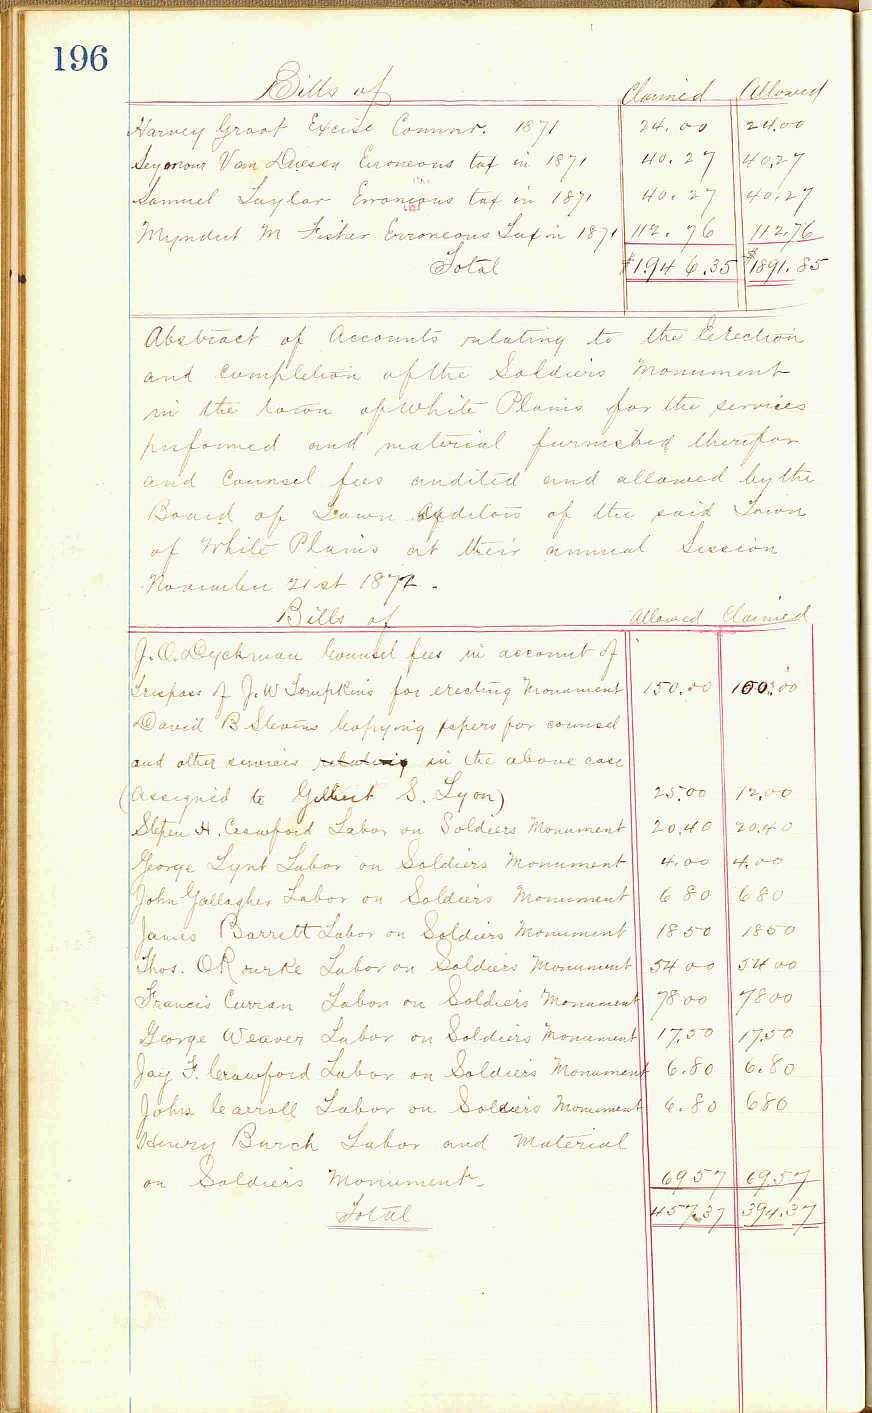 196
Bills of Claimed Allowed
Harvey Groot Excise Commr. 1871 24.00 24.00
Seymour Van Duesen Erroneous tax in 1871 40.27 40.27
Samuel Taylor Erroneous tax in 1871 40.27 40.27
Myndert M Fisher Erroneous Tax in 1871 112.76 112.76
Total $1946.35 $1891.85
Abstract of Accounts relating to the Erection
and completion of the Soldiers Monument
in the town of White Plains for the services
performed and material furnished therefor
and Counsel fees audited and allowed by the
Board of Town Auditors of the said Town
of White Plains at their annual Session
November 21st 1872.
Bills of Allowed Claimed
J. O. Dyckman Counsel fees in account of
Trespass of J. W Tompkins for erecting Monument 150.00 100.00
David B Stevens Copying papers for counsel
and other services relating in the above case
(Assigned to Gilbert S. Lyon) 25.00 12.00
Stepen H. Crawford Labor on Soldiers Monument 20.40 20.40
George Lynt Labor on Soldiers Monument 4.00 4.00
John Gallagher Labor on Soldiers Monument 6 80 6 80
James Barrett Labor on Soldiers Monument 18 50 18 50
Thos. O Rourke Labor on Soldiers Monument 54 00 54 00
Francis Curran Labor on Soldiers Monument 78 00 78 00
George Weaver Labor on Soldiers Monument 17.50 17.50
Jay F. Crawford Labor on Soldiers Monument 6.80 6.80
John Carroll Labor on Soldiers Monument 6.80 6 80
Henry Burch Labor and Material
on Soldiers Monument 69 57 69.57
Total 457.37 394.37